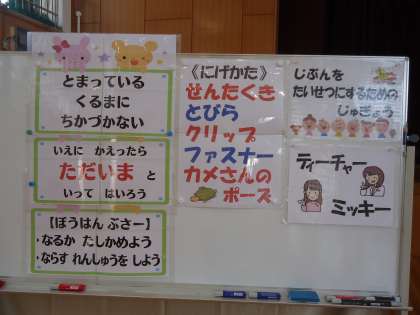 とまっている
くるまに
ちかづかない
いえに かえったら
ただいま と
いって はいろう
【ぼうはん ぶざー】
・なるか たしかめよう
・ならす れんしゅうを しよう
《にげかた》
せんたくき
とびら
クリップ
ファスナー
カメさんの
ポーズ
じぶんを
たいせつにするための
じゅぎょう
ティーチャー
ミッキー